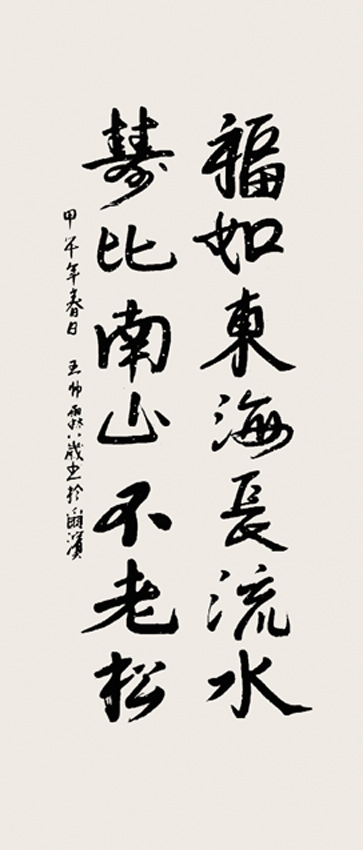 福如東海長流水
壽比南山不老松
甲午年春日 王帅霖八歲书於爾濱